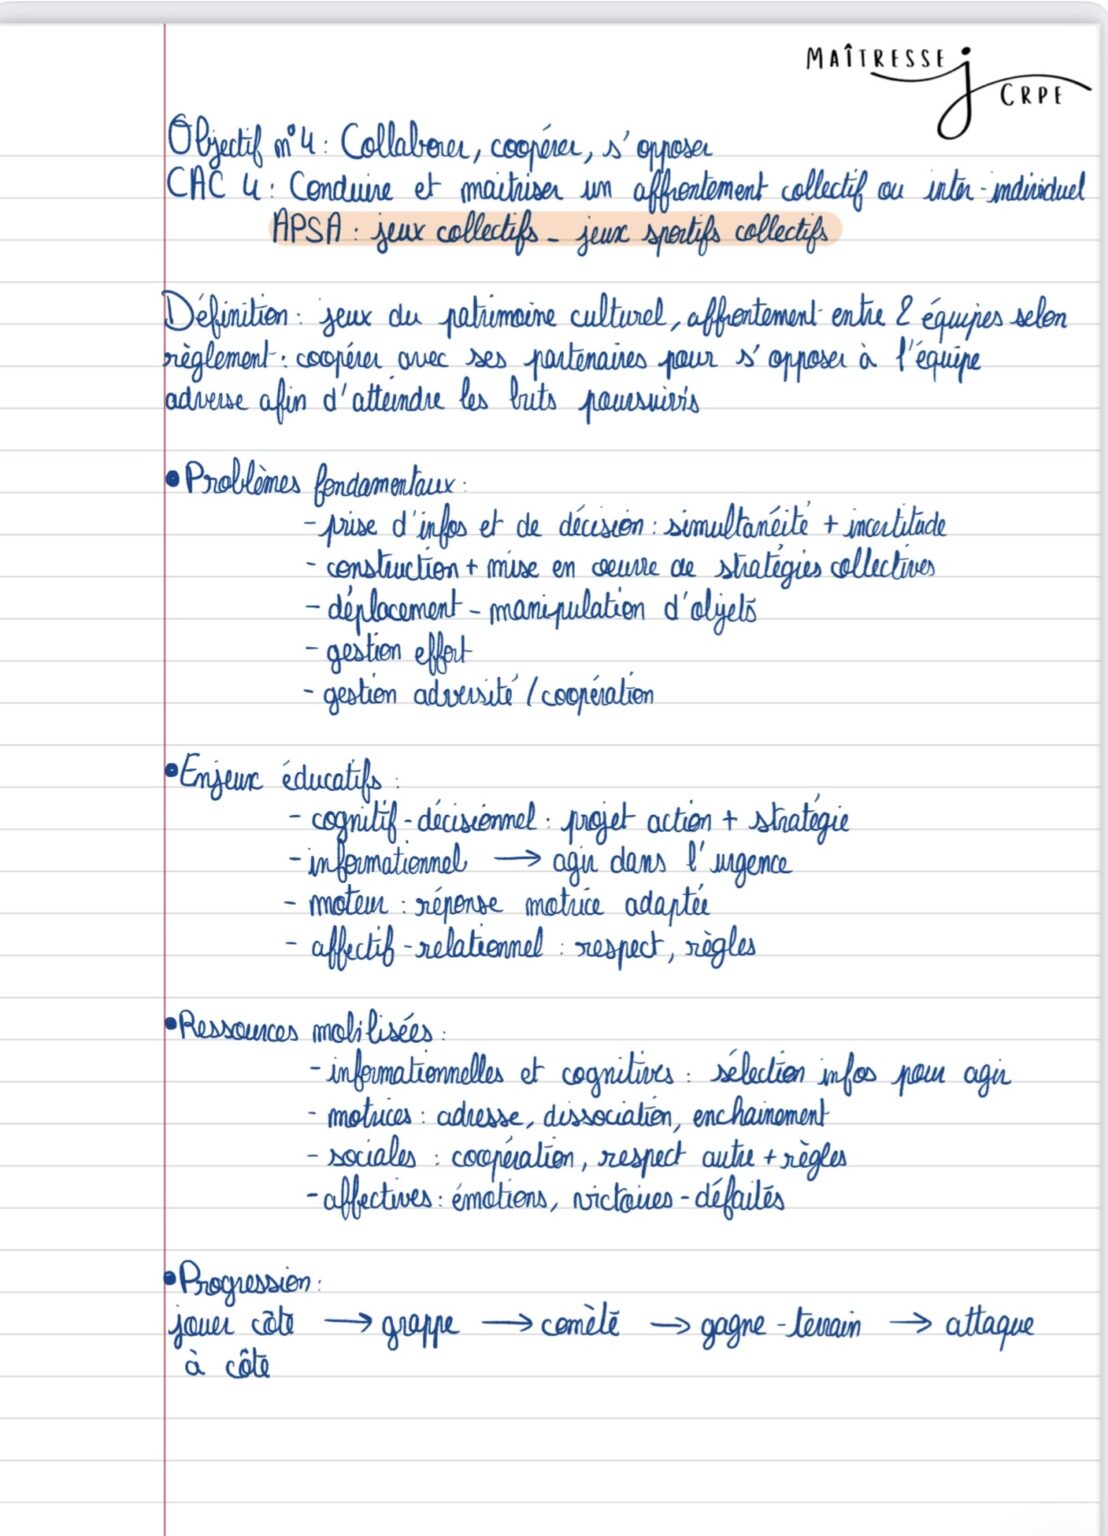 MAÎTRESSE J CRPE
Objectif n°4 : Collaborer, coopérer, s'opposer
CAC 4 : Conduire et maitriser un affrontement collectif ou inter-individuel
APSA : jeux collectifs - jeux sportifs collectifs
Définition : jeux du patrimoine culturel, affrontement entre 2 équipes selon
règlement : coopérer avec ses partenaires pour s'opposer à l'équipe
adverse afin d'atteindre les buts poursuivis
• Problèmes fondamentaux :
- prise d'infos et de décision : simultanéité + incertitude
- construction + mise en oeuvre de stratégies collectives
- déplacement - manipulation d'objets
- gestion effort
- gestion adversité / coopération
• Enjeux éducatifs :
- cognitif - décisionnel : projet action + stratégie
- informationnel → agir dans l'urgence
- moteur : réponse motrice adaptée
- affectif - relationnel : respect, règles
• Ressources mobilisées :
- informationnelles et cognitives : sélection infos pour agir
- motrices : adresse, dissociation, enchainement
- sociales : coopération, respect autre + règles
- affectives : émotions, victoires - défaites
• Progression :
jouer côte → grappe → comète → gagne-terrain → attaque
à côte